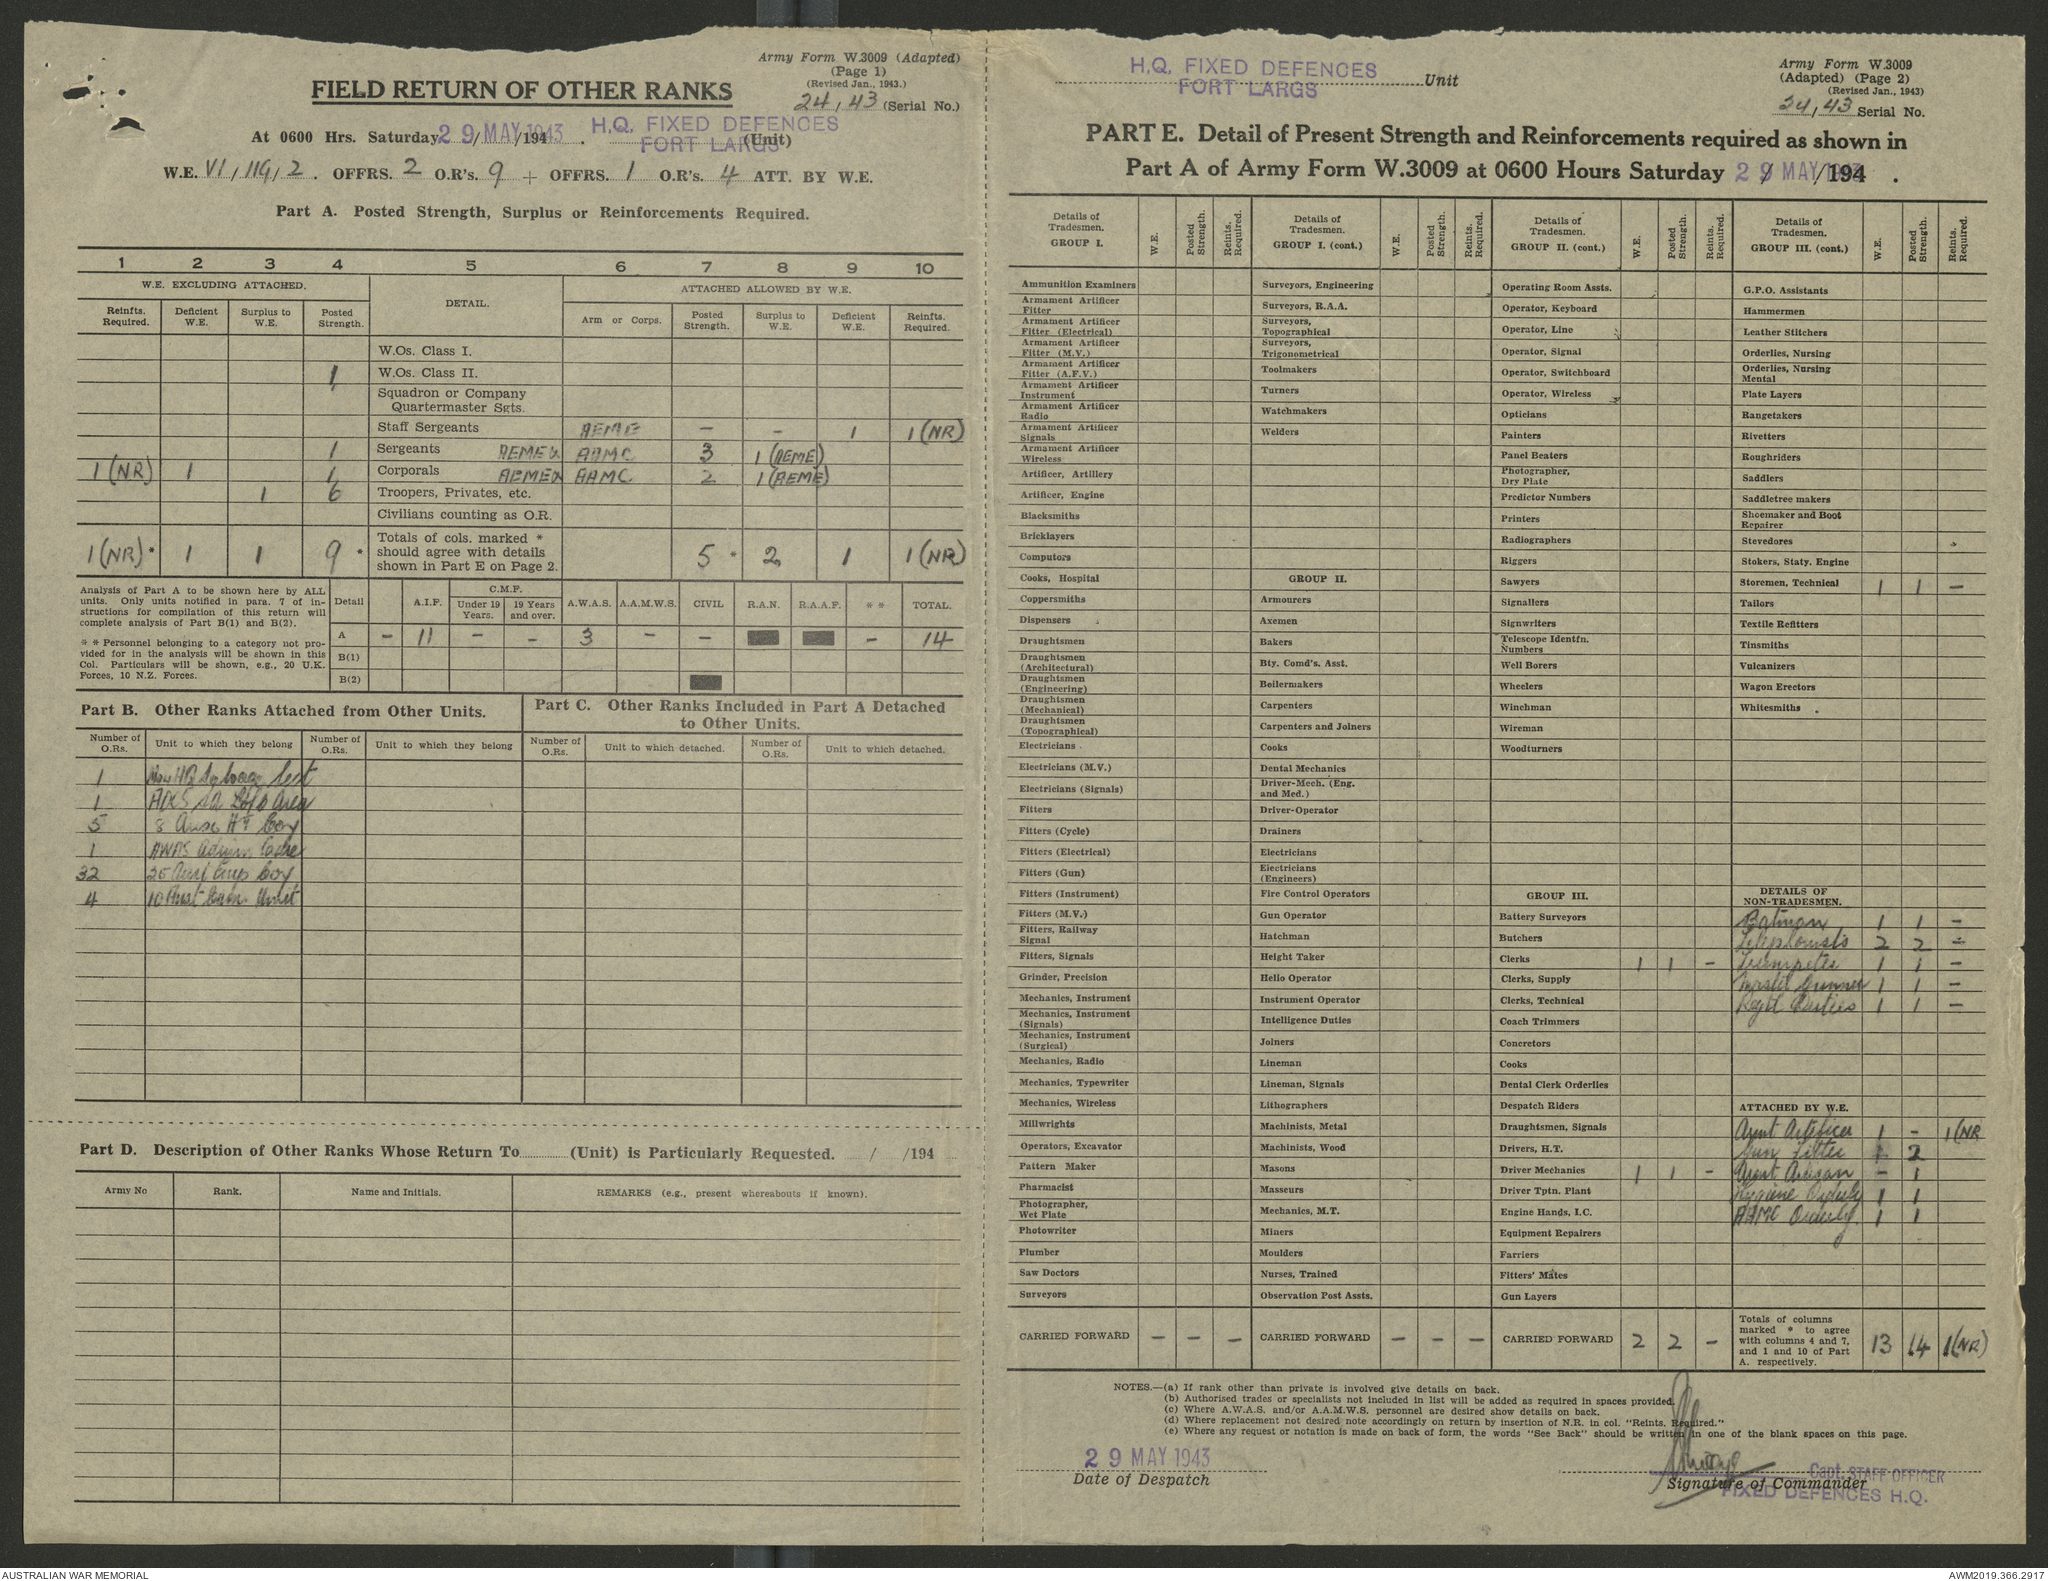 Army Form W.3009 (Adapted)
(Page 1)
(Revised Jan., 1943.)
FIELD RETURN OF OTHER RANKS
24/43 (Serial No.)
At 0600 Hrs. Saturday 29/MAY/1943. H.Q. FIXED DEFENCES (Unit)
FORT LARGS
W.E. VI/119/2. OFFRS. 2 O.R's. 9 + OFFRS. 1 O.R's. 4 ATT. BY W.E.
Part A. Posted Strength, Surplus or Reinforcements Required.
1 2 3 4 5 6 7 8 9 10
W.E. EXCLUDING ATTACHED. DETAIL. ATTACHED ALLOWED BY W.E.
Reinfts. Required. Deficient W.E. Surplus to W.E. Posted Strength. Arm or Corps. Posted Strength. Surplus to W.E. Deficient W.E. Reinfts. Required.
W.Os. Class I.
1 W.Os. Class II.
Squadron or Company
Quartermaster Sgts.
Staff Sergeants AEME – – 1 1(NR)
1 Sergeants AEME & AAMC 3 1(AEME)
1(NR) 1 1 Corporals AEME & AAMC 2 1(AEME)
1 6 Troopers, Privates, etc.
Civilians counting as O.R.
1(NR)* 1 1 9 * Totals of cols. marked * should agree with details shown in Part E on Page 2. 5 * 2 1 1(NR)
Analysis of Part A to be shown here by ALL
units. Only units notified in para. 7 of in-
structions for compilation of this return will
complete analysis of Part B(1) and B(2).
* * Personnel belonging to a category not pro-
vided for in the analysis will be shown in this
Col. Particulars will be shown, e.g., 20 U.K.
Forces, 10 N.Z. Forces.
Detail A.I.F. C.M.F. Under 19 Years. 19 Years and over. A.W.A.S. A.A.M.W.S. CIVIL R.A.N. R.A.A.F. * * TOTAL.
A – 11 – – 3 – – – 14
B(1)
B(2)
Part B. Other Ranks Attached from Other Units.
Number of O.Rs. Unit to which they belong Number of O.Rs. Unit to which they belong
1 HQ Sect
1 Area
5 8 Coy
1 AWAS Admin Cadre
32 Emp Coy
4 10 Aust Unit
Part C. Other Ranks Included in Part A Detached
to Other Units.
Number of O.Rs. Unit to which detached. Number of O.Rs. Unit to which detached.
Part D. Description of Other Ranks Whose Return To (Unit) is Particularly Requested. / /194
Army No Rank. Name and Initials. REMARKS (e.g., present whereabouts if known).
H.Q. FIXED DEFENCES Unit
FORT LARGS
Army Form W.3009
(Adapted) (Page 2)
(Revised Jan., 1943)
24/43 Serial No.
PART E. Detail of Present Strength and Reinforcements required as shown in
Part A of Army Form W.3009 at 0600 Hours Saturday 29 MAY 1943 /194 .
Details of Tradesmen. GROUP I. W.E. Posted Strength. Reints. Required.
Ammunition Examiners
Armament Artificer Fitter
Armament Artificer Fitter (Electrical)
Armament Artificer Fitter (M.V.)
Armament Artificer Fitter (A.F.V.)
Armament Artificer Instrument
Armament Artificer Radio
Armament Artificer Signals
Armament Artificer Wireless
Artificer, Artillery
Artificer, Engine
Blacksmiths
Bricklayers
Computors
Cooks, Hospital
Coppersmiths
Dispensers
Draughtsmen
Draughtsmen (Architectural)
Draughtsmen (Engineering)
Draughtsmen (Mechanical)
Draughtsmen (Topographical)
Electricians
Electricians (M.V.)
Electricians (Signals)
Fitters
Fitters (Cycle)
Fitters (Electrical)
Fitters (Gun)
Fitters (Instrument)
Fitters (M.V.)
Fitters, Railway Signal
Fitters, Signals
Grinder, Precision
Mechanics, Instrument
Mechanics, Instrument (Signals)
Mechanics, Instrument (Surgical)
Mechanics, Radio
Mechanics, Typewriter
Mechanics, Wireless
Millwrights
Operators, Excavator
Pattern Maker
Pharmacist
Photographer, Wet Plate
Photowriter
Plumber
Saw Doctors
Surveyors
CARRIED FORWARD – – –
Details of Tradesmen. GROUP I. (cont.) W.E. Posted Strength. Reints. Required.
Surveyors, Engineering
Surveyors, R.A.A.
Surveyors, Topographical
Surveyors, Trigonometrical
Toolmakers
Turners
Watchmakers
Welders
GROUP II.
Armourers
Axemen
Bakers
Bty. Comd's. Asst.
Boilermakers
Carpenters
Carpenters and Joiners
Cooks
Dental Mechanics
Driver-Mech. (Eng. and Med.)
Driver-Operator
Drainers
Electricians
Electricians (Engineers)
Fire Control Operators
Gun Operator
Hatchman
Height Taker
Helio Operator
Instrument Operator
Intelligence Duties
Joiners
Lineman
Lineman, Signals
Lithographers
Machinists, Metal
Machinists, Wood
Masons
Masseurs
Mechanics, M.T.
Miners
Moulders
Nurses, Trained
Observation Post Assts.
CARRIED FORWARD – – –
Details of Tradesmen. GROUP II. (cont.) W.E. Posted Strength. Reints. Required.
Operating Room Assts.
Operator, Keyboard
Operator, Line
Operator, Signal
Operator, Switchboard
Operator, Wireless
Opticians
Painters
Panel Beaters
Photographer, Dry Plate
Predictor Numbers
Printers
Radiographers
Riggers
Sawyers
Signallers
Signwriters
Telescope Identfn. Numbers
Well Borers
Wheelers
Winchman
Wireman
Woodturners
GROUP III.
Battery Surveyors
Butchers
Clerks 1 1 –
Clerks, Supply
Clerks, Technical
Coach Trimmers
Concretors
Cooks
Dental Clerk Orderlies
Despatch Riders
Draughtsmen, Signals
Drivers, H.T.
Driver Mechanics 1 1 –
Driver Tptn. Plant
Engine Hands, I.C.
Equipment Repairers
Farriers
Fitters' Mates
Gun Layers
CARRIED FORWARD 2 2 –
Details of Tradesmen. GROUP III. (cont.) W.E. Posted Strength. Reints. Required.
G.P.O. Assistants
Hammermen
Leather Stitchers
Orderlies, Nursing
Orderlies, Nursing Mental
Plate Layers
Rangetakers
Rivetters
Roughriders
Saddlers
Saddletree makers
Shoemaker and Boot Repairer
Stevedores
Stokers, Staty. Engine
Storemen, Technical 1 1 –
Tailors
Textile Refitters
Tinsmiths
Vulcanizers
Wagon Erectors
Whitesmiths
DETAILS OF NON-TRADESMEN.
Batman 1 1 –
Telephonists 2 2 –
Trumpeter 1 1 –
Master Gunner 1 1 –
Regtl Duties 1 1 –
ATTACHED BY W.E.
Armt Artificer 1 – 1(NR
Gun Fitter 1 2
Armt Artisan – 1
Hygiene Orderly 1 1
AAMC Orderly. 1 1
Totals of columns marked * to agree with columns 4 and 7, and 1 and 10 of Part A. respectively. 13 14 1(NR)
NOTES.—(a) If rank other than private is involved give details on back.
(b) Authorised trades or specialists not included in list will be added as required in spaces provided.
(c) Where A.W.A.S. and/or A.A.M.W.S. personnel are desired show details on back.
(d) Where replacement not desired note accordingly on return by insertion of N.R. in col. "Reints. Required."
(e) Where any request or notation is made on back of form, the words "See Back" should be written in one of the blank spaces on this page.
29 MAY 1943
Date of Despatch
Capt. STAFF OFFICER
Signature of Commander
FIXED DEFENCES H.Q.
AUSTRALIAN WAR MEMORIAL
AWM2019.366.2917